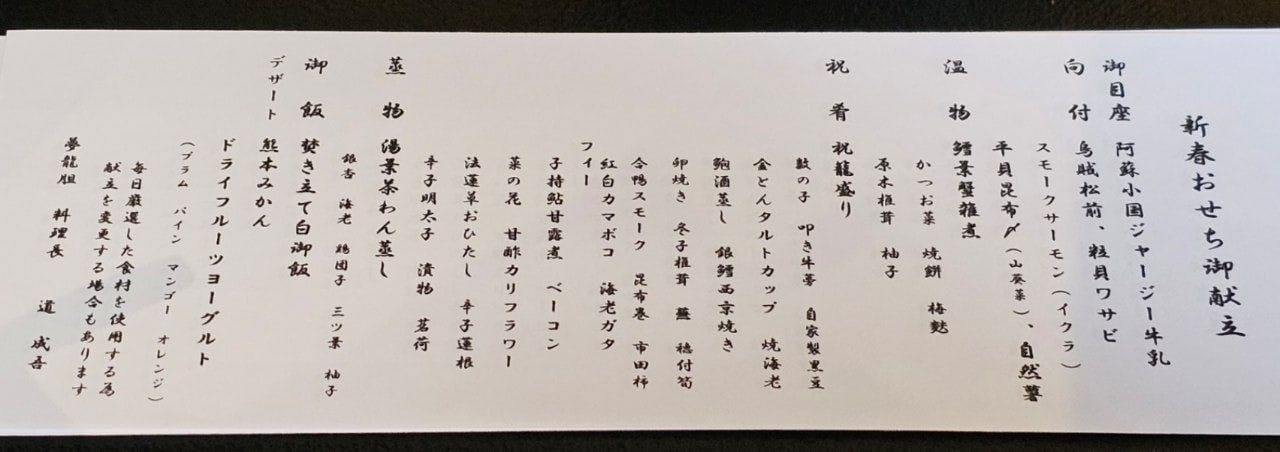 新春おせち御献立
御目座 阿蘇小国ジャージー牛乳
向付 烏賊松前、粒貝ワサビ
スモークサーモン(イクラ)
平貝昆布〆(山葵菜)、自然薯
温物 鱈葉蟹雑煮
かつお菜 焼餅 梅麩
原木椎茸 柚子
祝肴 祝龍盛り
数の子 叩き牛蒡 自家製黒豆
金とんタルトカップ 焼海老
鮑酒蒸し 銀鱈西京焼き
卵焼き 冬子椎茸 蕪 穂付筍
合鴨スモーク 昆布巻 市田柿
紅白カマボコ 海老ガタ
フイー
子持鮎甘露煮 ベーコン
菜の花 甘酢カリフラワー
法蓮草おひたし 辛子蓮根
辛子明太子 漬物 茗荷
蒸物 湯葉茶わん蒸し
銀杏 海老 鶏団子 三ツ葉 柚子
御飯 焚き立て白御飯
デザート 熊本みかん
ドライフルーツヨーグルト
(プラム パイン マンゴー オレンジ)
毎日厳選した食材を使用する為
献立を変更する場合もあります
夢龍胆 料理長 道 成吾